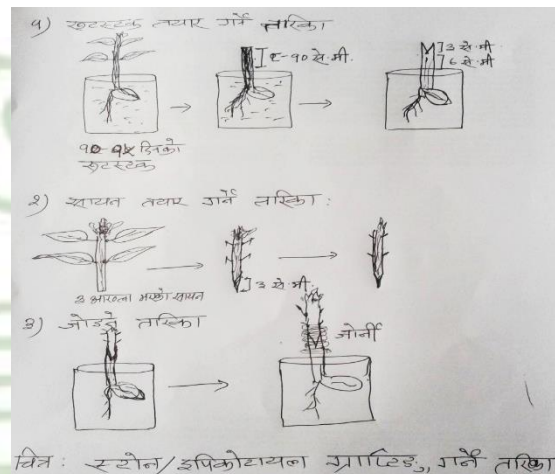 १) रुटस्टक तयार गर्ने तरिका
८-१० से.मी.
३ से.मी
६ से.मी
१०-१५ दिनको
रुटस्टक
२) सायन तयार गर्ने तरिका:
३ आँख्ला भएको सायन
३ से.मी.
३) जोड्ने तरिका
जोर्नी
चित्र: स्टोन/इपिकोटायल ग्राफ्टिङ्ग, गर्ने तरिका